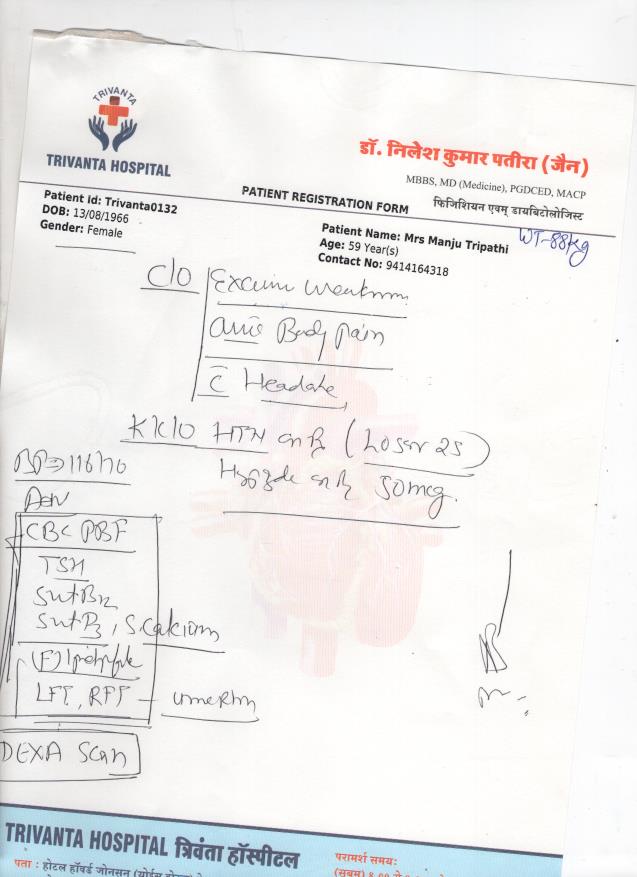 TRIVANTA
TRIVANTA HOSPITAL
डॉ. निलेश कुमार पतीरा (जैन)
MBBS, MD (Medicine), PGDCED, MACP
फिजिशियन एवम् डायबिटोलोजिस्ट
PATIENT REGISTRATION FORM
Patient Id: Trivanta0132
DOB: 13/08/1966
Gender: Female
Patient Name: Mrs Manju Tripathi
Age: 59 Year(s)
Contact No: 9414164318
WT-88kg
C/O
Body pain
c̄ Headache
K/C/O HTN on Rx (Losar 25)
on Rx 50mcg.
BP⇒116/70
Adv
CBC PBF
TSH
S.vit B12
S.vit D3, S.calcium
(F) lipid profile
LFT, RFT – urine R/m
DEXA Scan
TRIVANTA HOSPITAL त्रिवंता हॉस्पीटल
पता : होटल हॉवर्ड जोनसन
परामर्श समय: